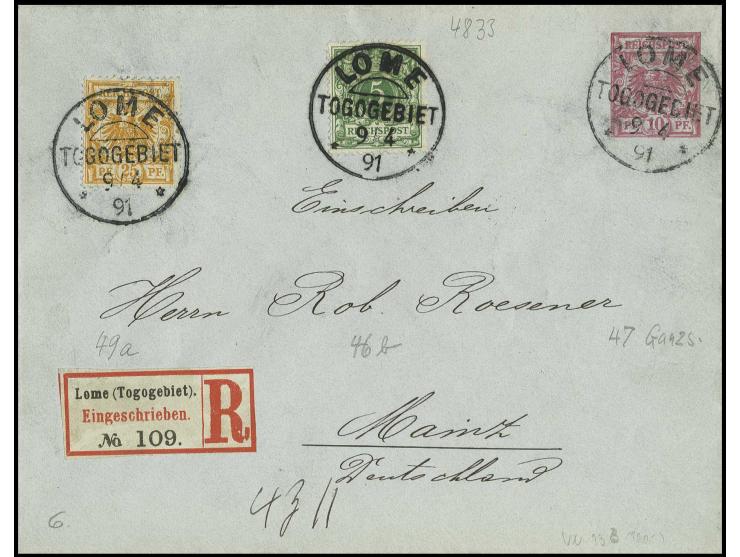 4833
REICHSPOST
LOME
TOGOGEBIET
9/4
91
PF. 25 PF.
LOME
TOGOGEBIET
9 4
91
5
REICHSPOST
LOME
TOGOGEBIET
9 4
91
PF. 10 PF.
Einschreiben
Herrn Rob. Roesener
49a
46b
47 Ganzs.
Lome (Togogebiet).
Eingeschrieben.
No 109.
R
Mainz
Deutschland
6.